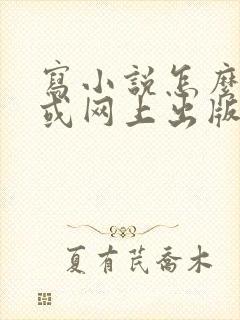 寫小説怎麽
或网上出版
夏有芪喬木